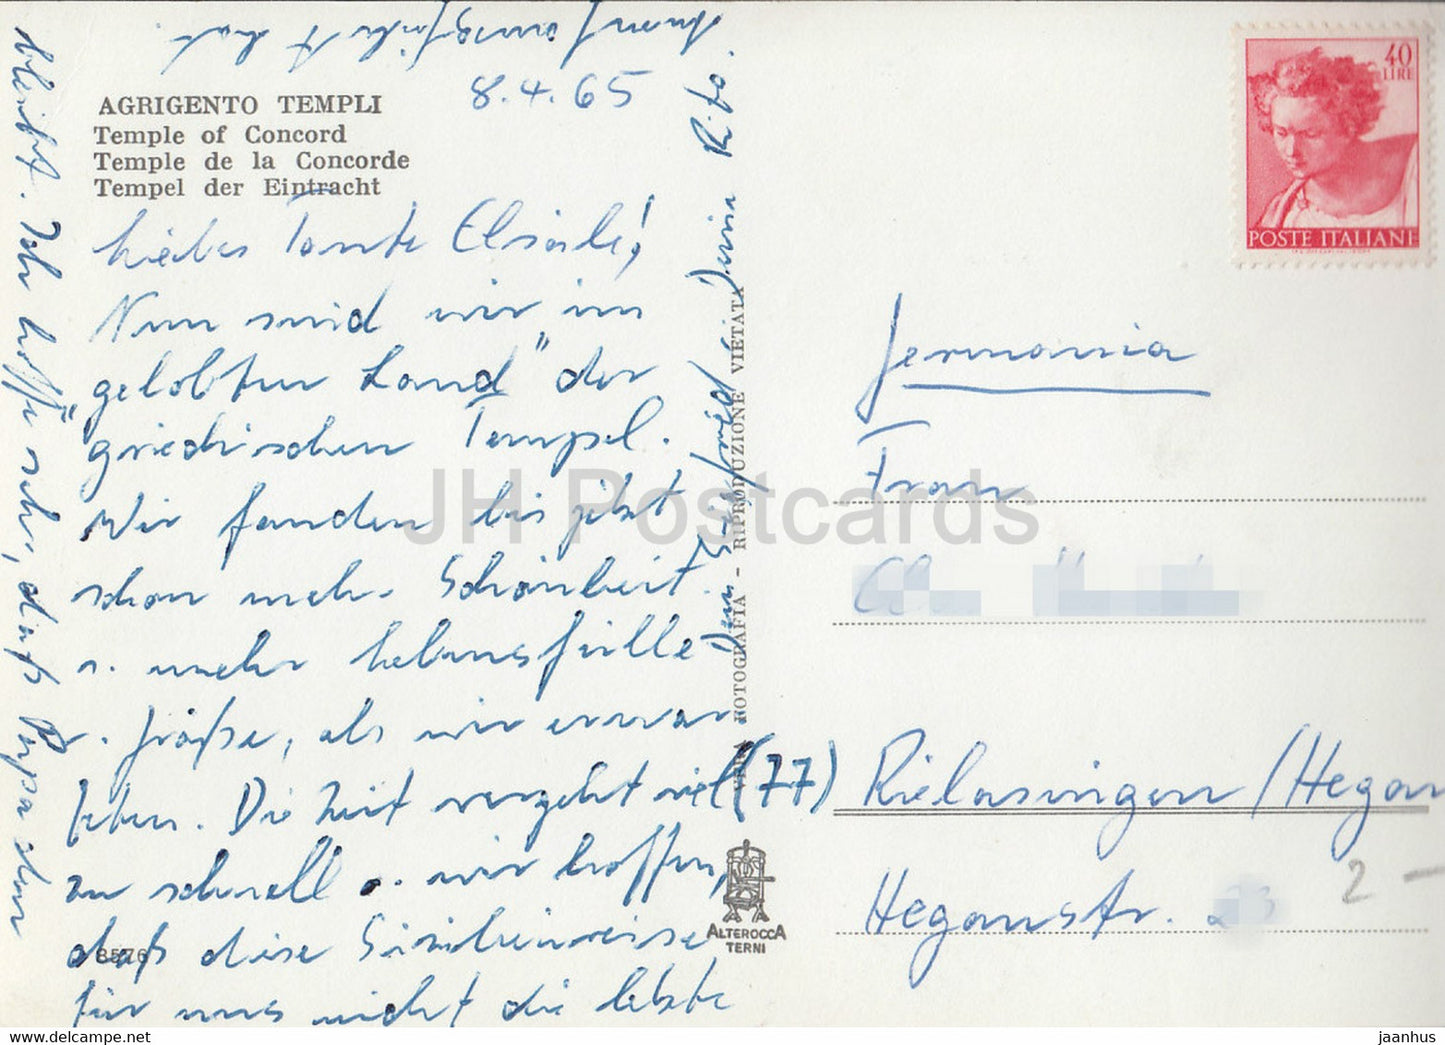 8.4.65
AGRIGENTO TEMPLI
Temple of Concord
Temple de la Concorde
Tempel der Eintracht
Liebes Tante Elsäle!
Nun sind wir im
"gelobten Land" der
griechischen Tempel.
Wir fanden bis jetzt
schon mehr Schönheit.
u. mehr Lebensfülle
u. Größe, als wir erwar
teten. Die Zeit vergeht viel
zu schnell u. wir hoffen,
daß diese Sizilienreise
für uns nicht die letzte
bleibt. Ich hoffe sehr, daß Papa den
hat.
Dein Siegfried, Deine Rita.
8576
VERA FOTOGRAFIA - RIPRODUZIONE VIETATA
ALTEROCCA
TERNI
40
LIRE
POSTE ITALIANE
Germania
Frau
(77) Rielasingen/Hegau
Hegaustr.
2 -
JH Postcards
hippostcard.com
jaanhus